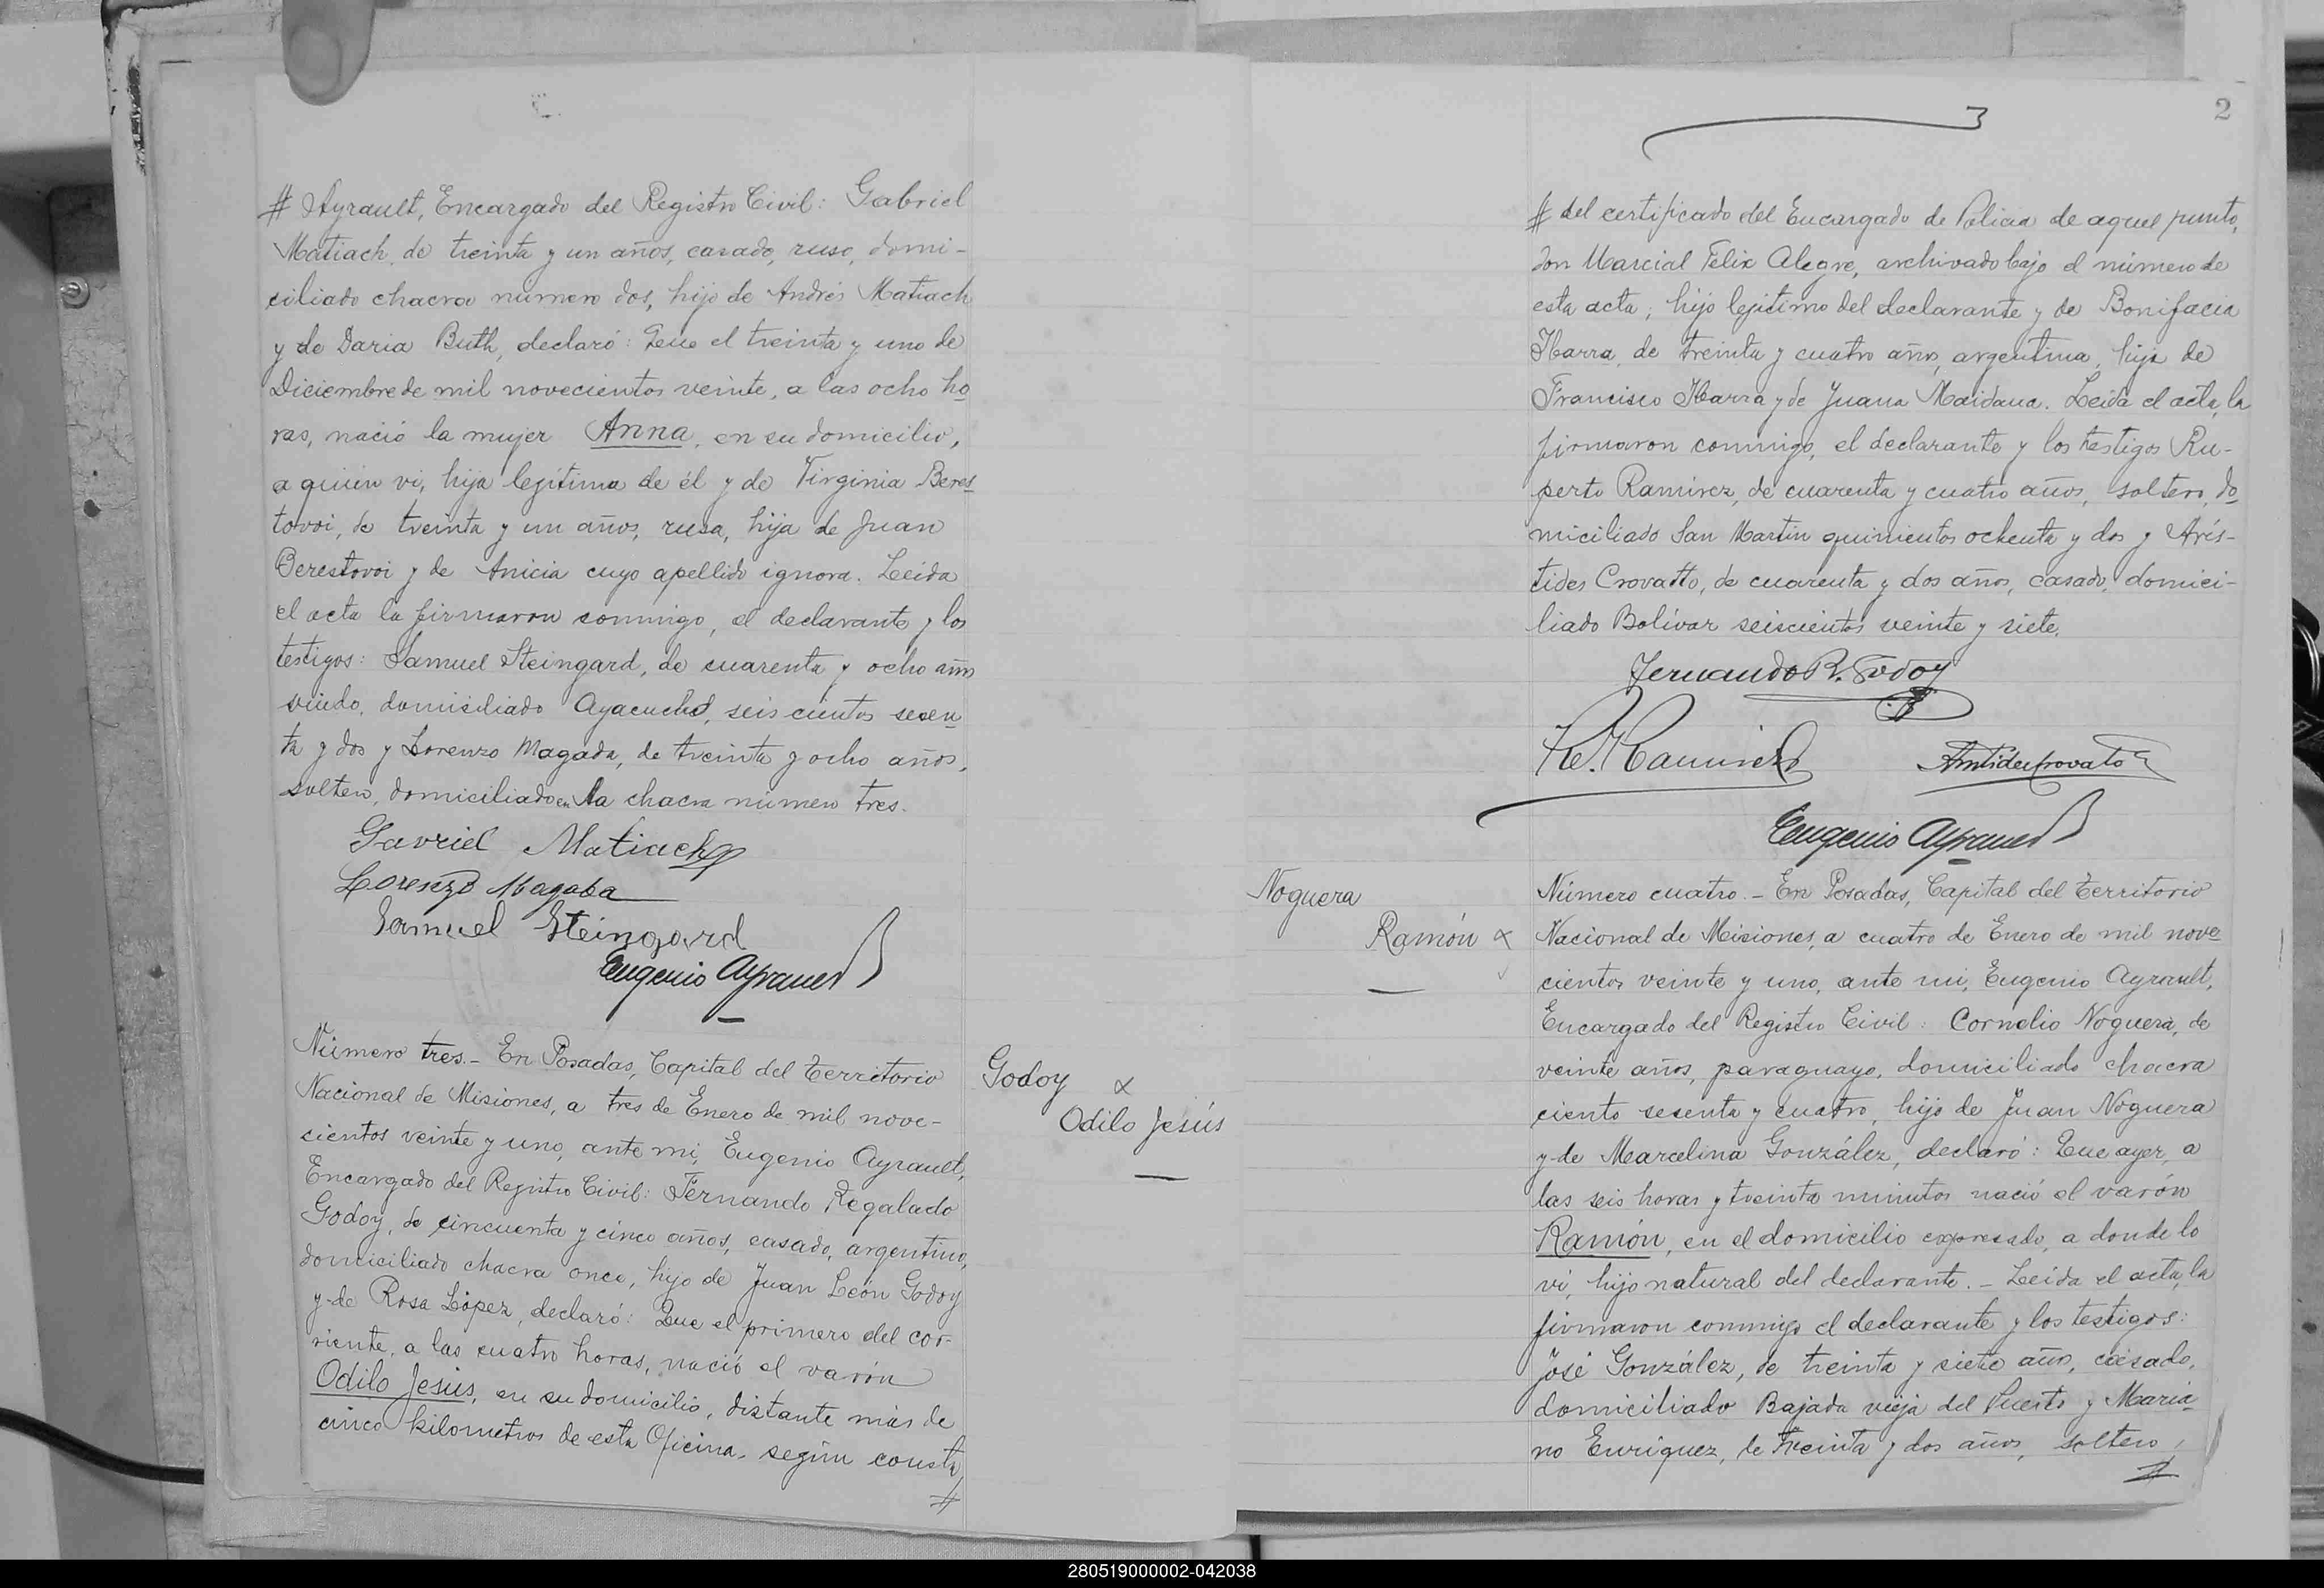 # Ayrault, Encargado del Registro Civil: Gabriel
Matiach, de treinta y un años, casado, ruso, domi-
ciliado chacra numero dos, hijo de Andrés Matiach
y de Daria Buth, declaró: Que el treinta y uno de
Diciembre de mil novecientos veinte, a las ocho ho
ras, nació la mujer Anna, en su domicilio,
a quien vi, hija legítima de él y de Virginia Beres
tovoi, de treinta y un años, rusa, hija de Juan
Berestovoi y de Anicia cuyo apellido ignora. Leida
el acta la firmaron conmigo, el declarante y los
testigos: Samuel Steingard, de cuarenta y ocho años
viudo, domiciliado Ayacucho, seis cientos sesen
ta y dos y Lorenzo Magada, de treinta y ocho años,
soltero, domiciliado en la chacra número tres.
Gavriel Matiach
Lorenzo Magada
Samuel Steingard
Eugenio Ayrault
Número tres.- En Posadas, Capital del Territorio
Nacional de Misiones, a tres de Enero de mil nove-
cientos veinte y uno, ante mi, Eugenio Ayrault,
Encargado del Registro Civil: Fernando Regalado
Godoy, de cincuenta y cinco años, casado, argentino,
domiciliado chacra once, hijo de Juan León Godoy
y de Rosa López, declaró: Que el primero del cor-
riente, a las cuatro horas, nació el varón
Odilo Jesús, en su domicilio, distante más de
cinco kilometros de esta Oficina, según consta,
#
Godoy
Odilo Jesús
2
# del certificado del Encargado de Policia de aquel punto,
don Marcial Felix Alegre, archivado bajo el número de
esta acta; hijo legitimo del declarante y de Bonifacia
Ibarra, de treinta y cuatro años, argentina, hija de
Francisco Ibarra y de Juana Maidana. Leida el acta, la
firmaron conmigo, el declarante y los testigos Ru-
perto Ramirez, de cuarenta y cuatro años, soltero, do
miciliado San Martin quinientos ochenta y dos y Arís-
tides Crovatto, de cuarenta y dos años, casado, domici-
liado Bolívar seiscientos veinte y siete.
Fernando R. Godoy
R. Ramirez
Aristides Crovatto
Eugenio Ayrault
Noguera
Ramón
Número cuatro.- En Posadas, Capital del Territorio
Nacional de Misiones, a cuatro de Enero de mil nove
cientos veinte y uno, ante mi, Eugenio Ayrault,
Encargado del Registro Civil: Cornelio Noguera, de
veinte años, paraguayo, domiciliado chacra
ciento sesenta y cuatro, hijo de Juan Noguera
y de Marcelina González, declaró: Que ayer, a
las seis horas y treinta minutos nació el varón
Ramón, en el domicilio expresado, a donde lo
vi, hijo natural del declarante.- Leída el acta, la
firmaron conmigo el declarante y los testigos:
José González, de treinta y siete años, casado,
domiciliado Bajada vieja del Puerto y Maria
no Enriquez, de treinta y dos años, soltero,
#
280519000002-042038